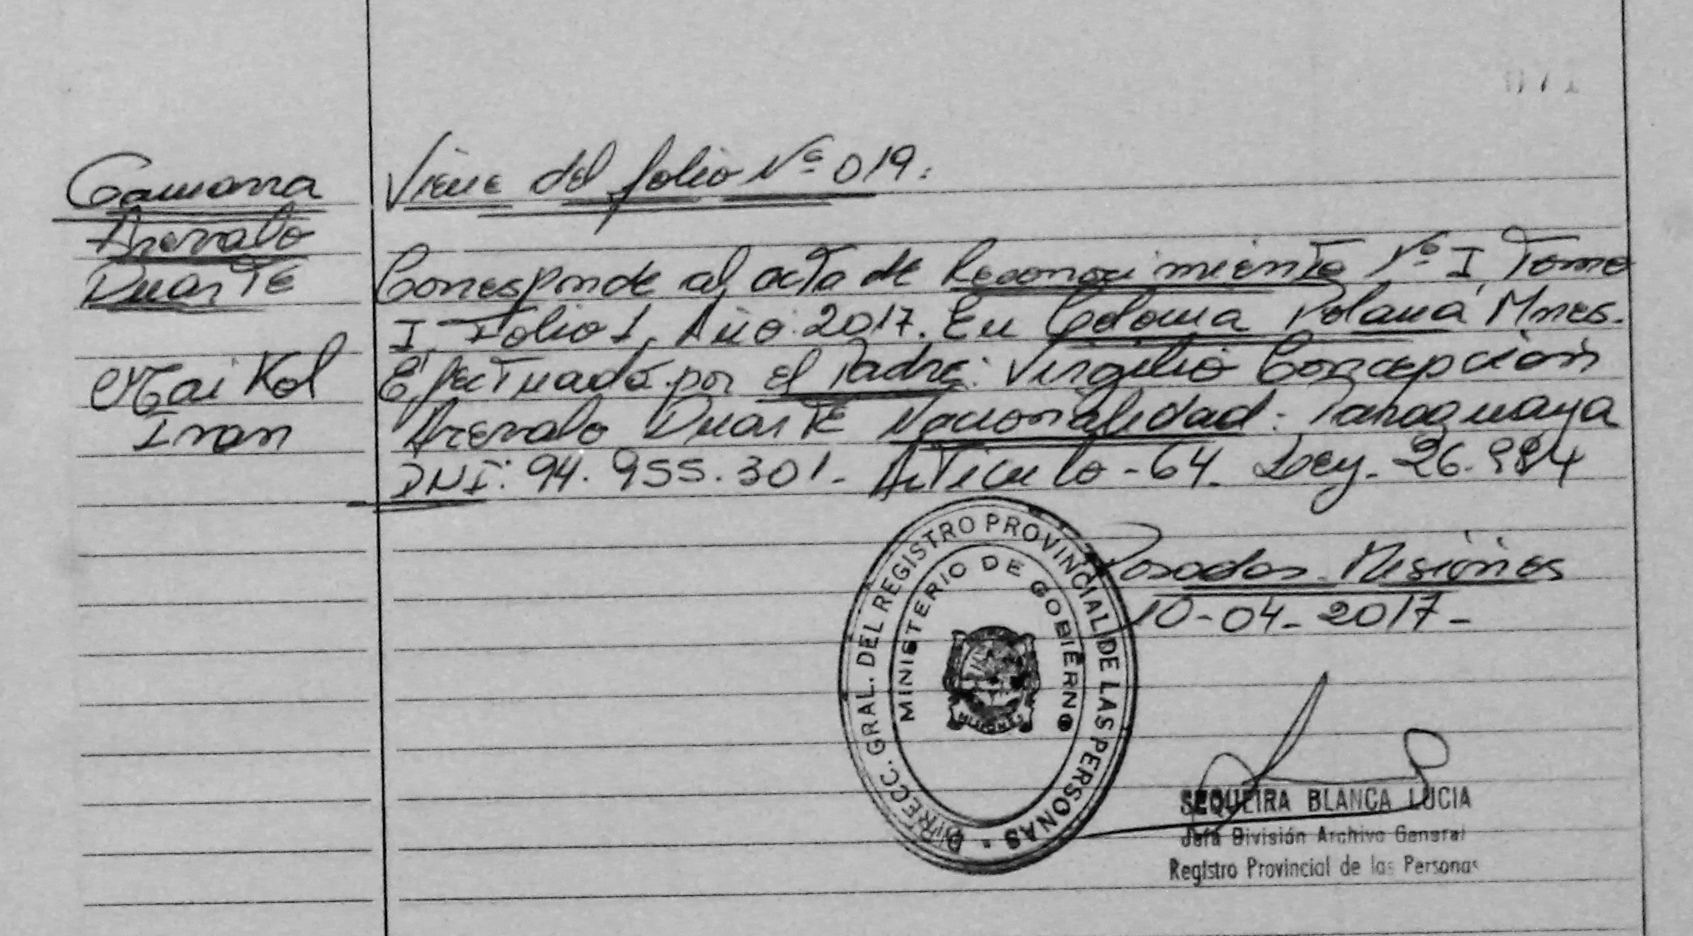 Gamarra
Arevalo
Duarte
Maikol
Ivan
Viene del folio Nº 019.
Corresponde al acta de Reconocimiento Nº I Tomo
I Folio 1. Año: 2017. En Colonia Polana Mnes.
Efectuado por el Padre: Virgilio Concepcion
Arevalo Duarte Nacionalidad: Paraguaya
DNI: 94.955.301. Articulo - 64. Ley. 26.994
Posadas Misiones
10-04-2017-
DIRECC. GRAL. DEL REGISTRO PROVINCIAL DE LAS PERSONAS
MINISTERIO DE GOBIERNO
MISIONES
SEQUEIRA BLANCA LUCIA
Jefa División Archivo General
Registro Provincial de las Personas